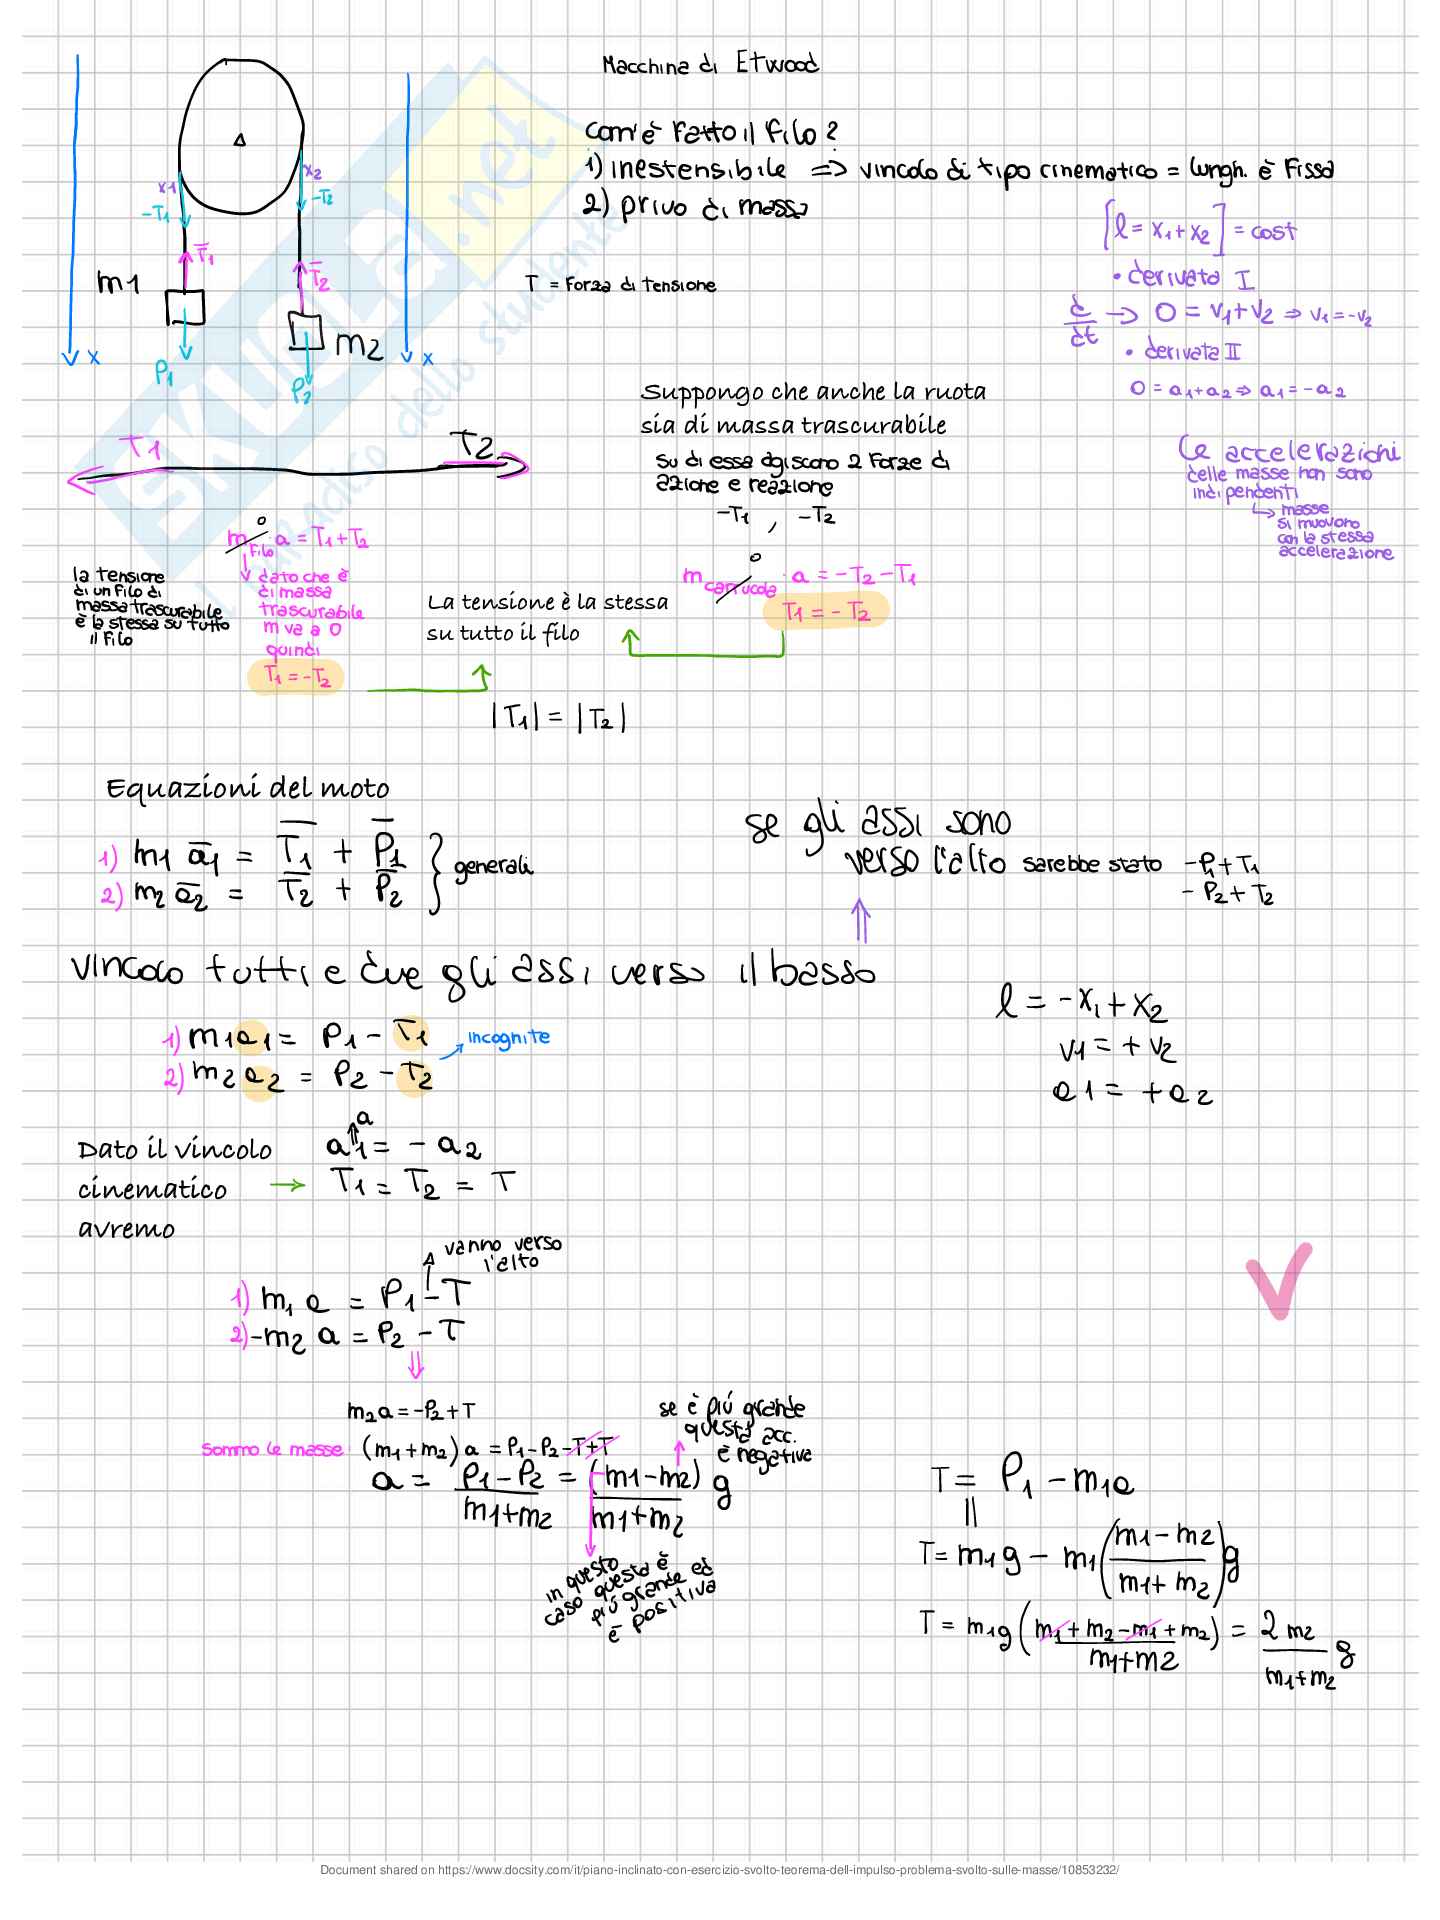 Macchina di Etwood
Com'è fatto il filo?
1) inestensibile => vincolo di tipo cinematico = lungh. è fissa
2) privo di massa
[l = x1 + x2] = cost
• derivata I
d/dt → 0 = v1 + v2 ⇒ v1 = -v2
• derivata II
0 = a1 + a2 ⇒ a1 = -a2
Le accelerazioni
delle masse non sono
indipendenti
↳ masse
si muovono
con la stessa
accelerazione
T = Forza di tensione
x1
x2
-T1
-T2
T1
T2
m1
m2
P1
P2
x
x
T1
T2
Suppongo che anche la ruota
sia di massa trascurabile
su di essa agiscono 2 forze di
azione e reazione
-T1 , -T2
0
m carrucola · a = -T2 - T1
T1 = - T2
0
m filo · a = T1 + T2
dato che è
di massa
trascurabile
m va a 0
quindi
T1 = -T2
la tensione
di un filo di
massa trascurabile
è la stessa su tutto
il filo
La tensione è la stessa
su tutto il filo
|T1| = |T2|
Equazioni del moto
1) m1 a1 = T1 + P1
2) m2 a2 = T2 + P2
} generali
se gli assi sono
verso l'alto sarebbe stato -P1 + T1
- P2 + T2
vincolo tutti e due gli assi verso il basso
1) m1a1 = P1 - T1
2) m2a2 = P2 - T2
incognite
l = -x1 + x2
v1 = + v2
a1 = + a2
Dato il vincolo
cinematico
avremo
a
a1 = - a2
→ T1 = T2 = T
vanno verso
l'alto
1) m1 a = P1 - T
2) -m2 a = P2 - T
m2a = -P2 + T
sommo le masse (m1 + m2) a = P1 - P2 - T + T
a = P1 - P2 / m1 + m2 = (m1 - m2) / m1 + m2 g
se è più grande
questa acc.
è negativa
in questo
caso questa è
più grande ed
è positiva
T = P1 - m1a
T = m1g - m1 (m1 - m2 / m1 + m2) g
T = m1g (m1 + m2 - m1 + m2) / m1 + m2 = 2 m2 / m1 + m2 g
SKUOLA.net
il paradiso dello studente
Document shared on https://www.docsity.com/it/piano-inclinato-con-esercizio-svolto-teorema-dell-impulso-problema-svolto-sulle-masse/10853232/